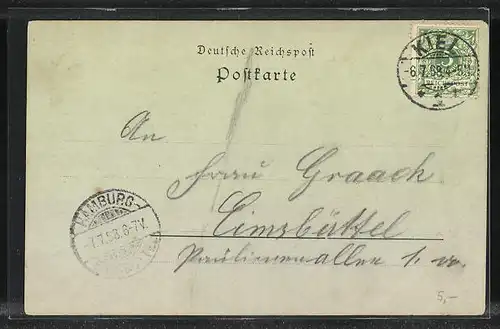 Deutsche Reichspost
Postkarte
KIEL
-6.7.98.4-5N.
An
Frau Graack
Eimsbüttel
Paulinenallee 1.
HAMBURG
7.7.98.6-7V.
5,-